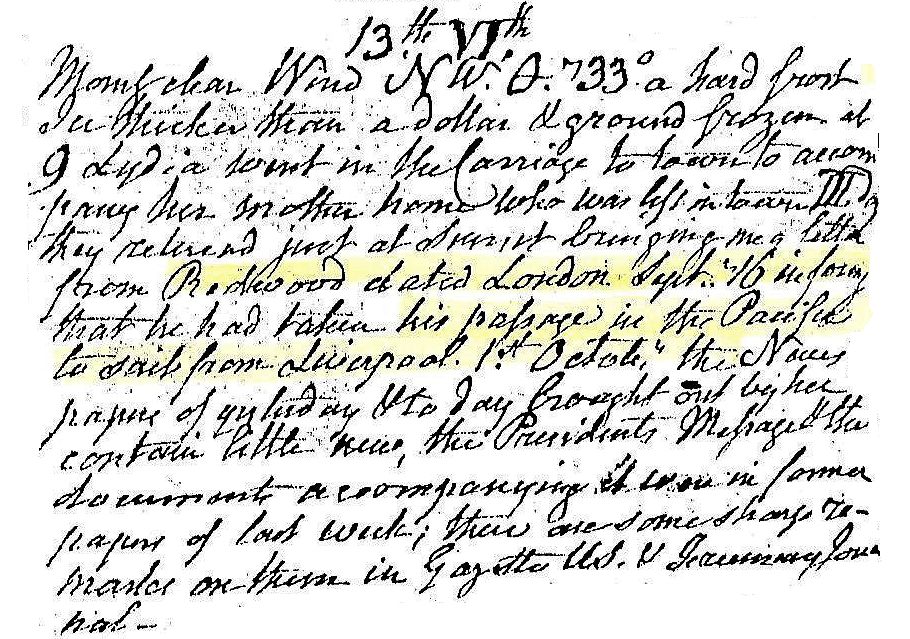 13.th VI.th
Morng clear Wind N W. & .733° a hard frost
Ice thicker than a dollar & ground frozen at
9 Lydia went in the Carriage to town to accom
pany her mother home who was left in town III.
they returnd just at Sunset bringing me a letter
from Redwood dated London Sept. 16 informg
that he had taken his passage in the Pacific
to sail from Liverpool. 1.st Octobr, the News
papers of yesterday & to day brought out by her
contain little new, the Presidents Message & the
documents accompanying it were in former
papers of last week; there are some sharp re-
marks on them in Gazette U.S. & Jour
nal -